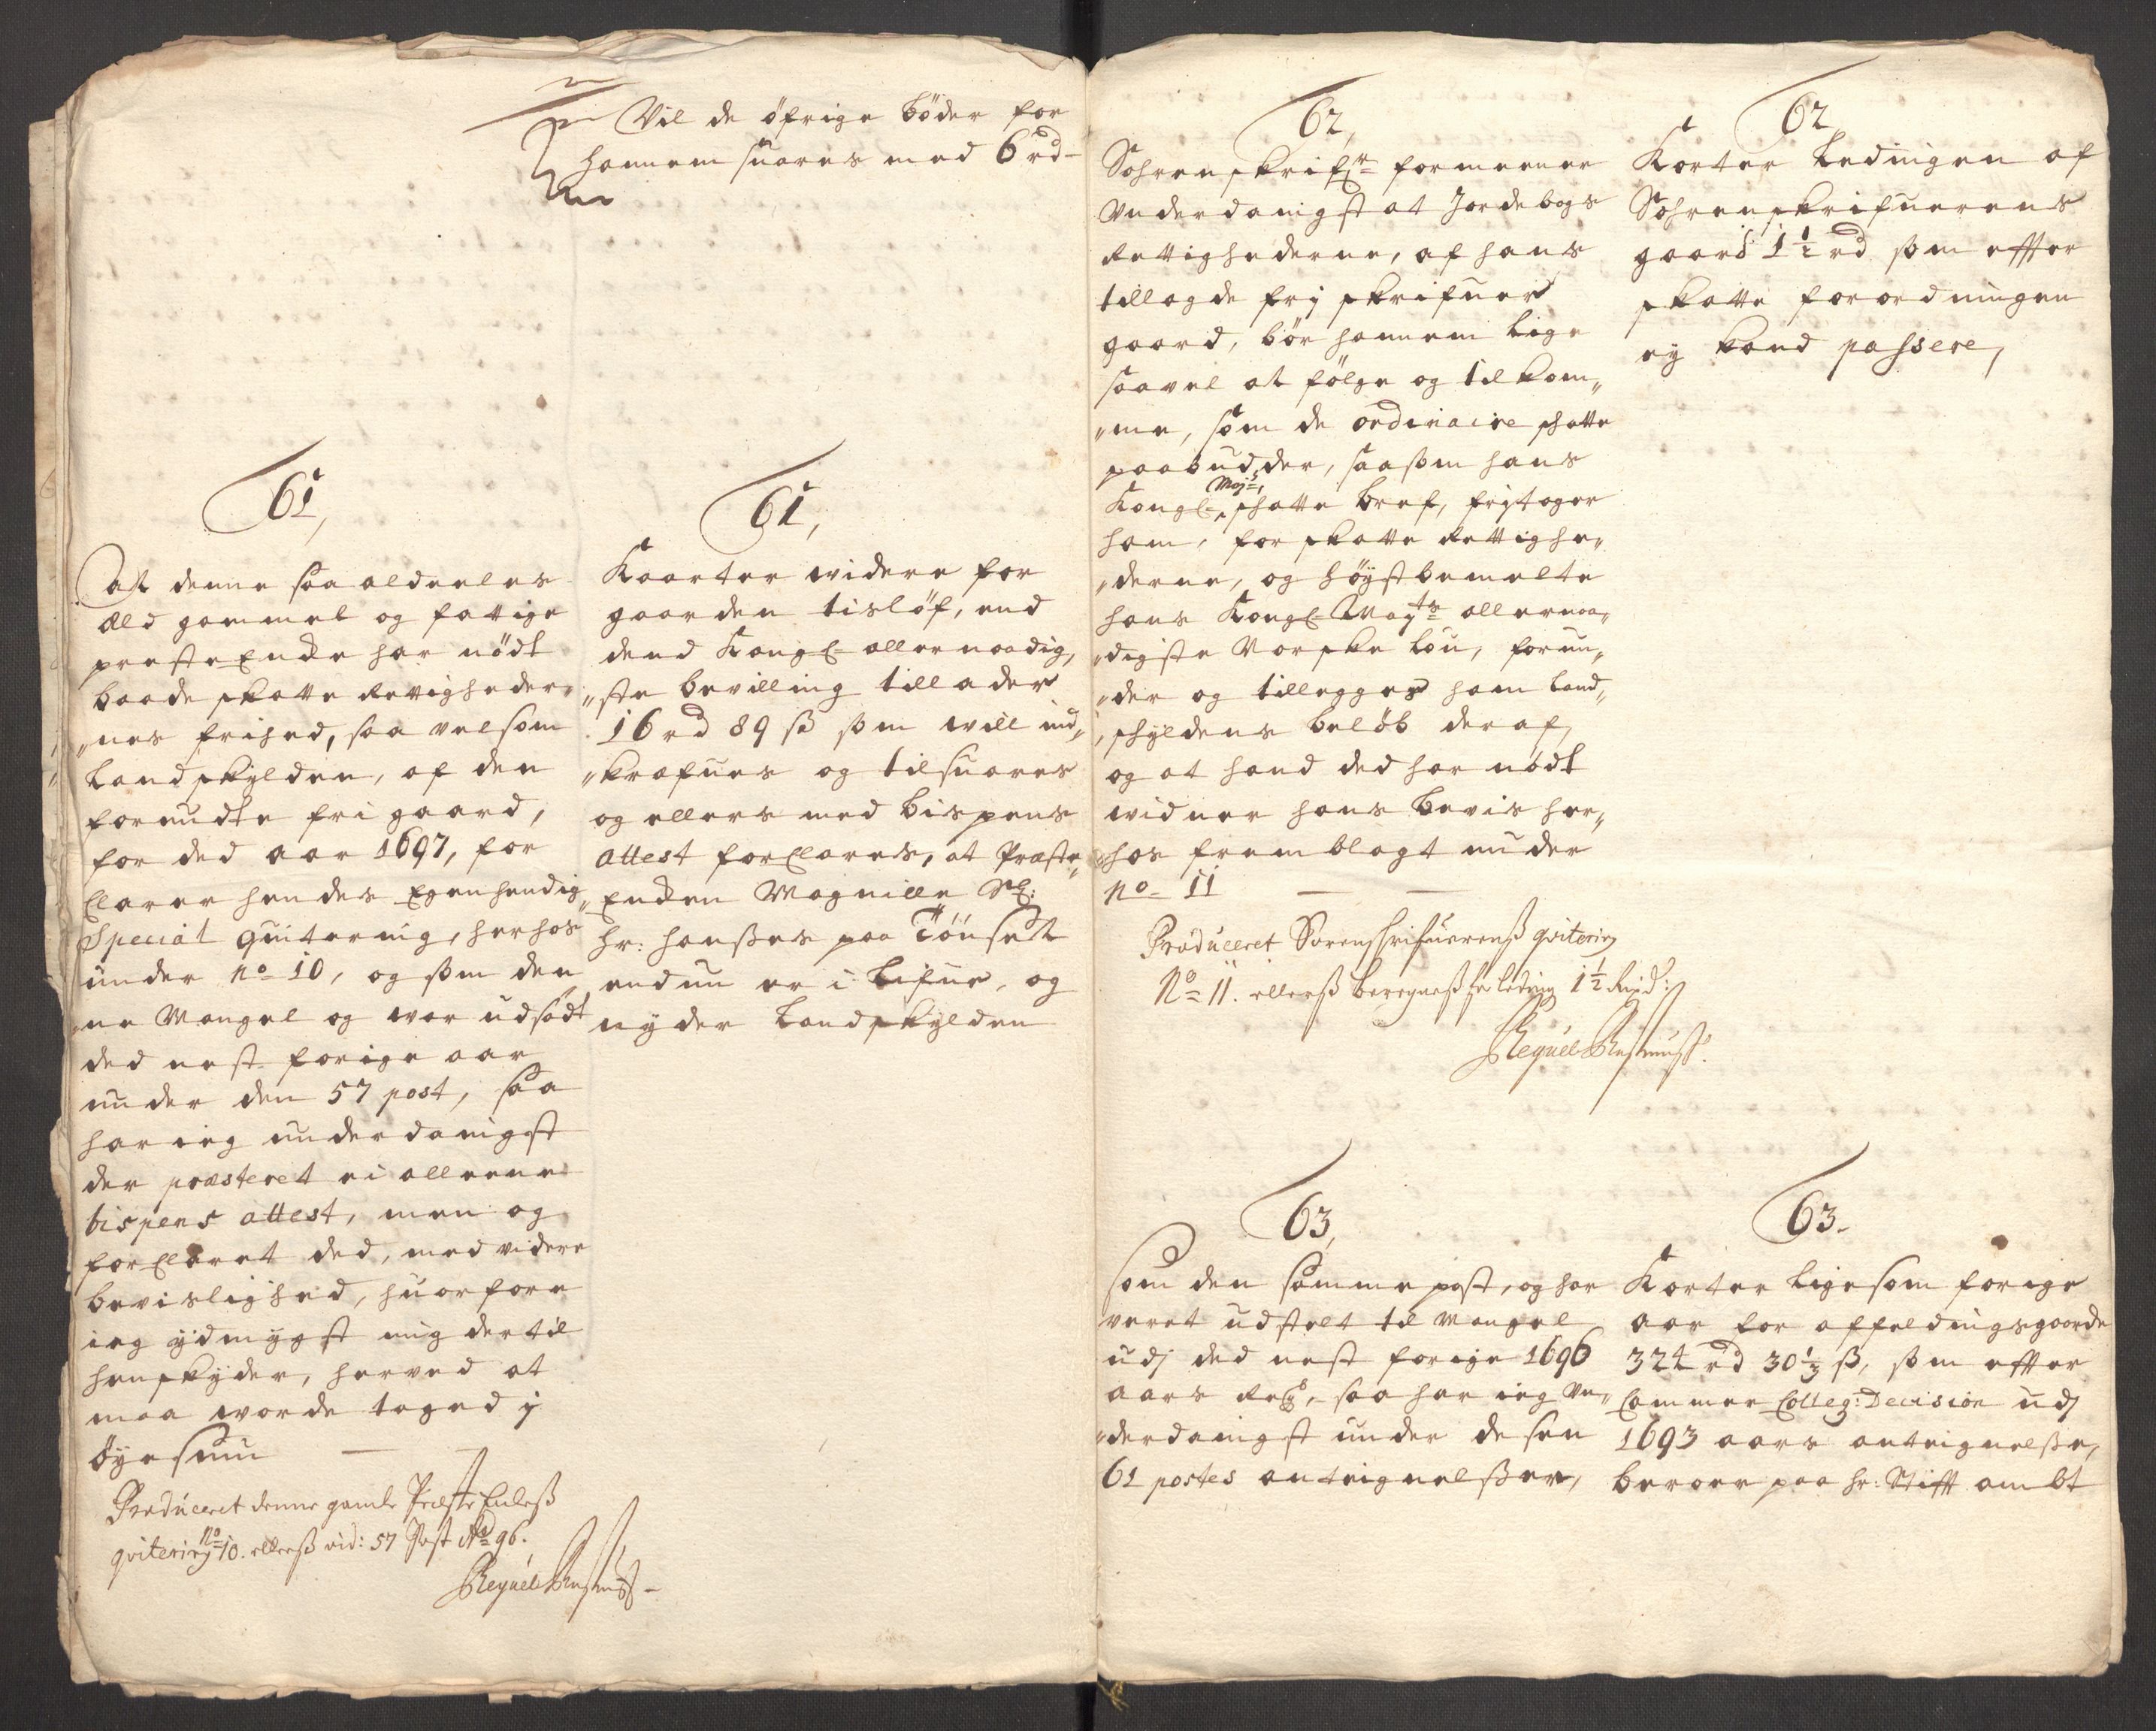 Vil de öfrige böder for
hannem suares med 6 rd
61,
At denne saa aldeeles
æld gammel og fattige
presteEncke har nödt
baade skatte Rettigheder„
„nes frihed, saa velsom
Landskylden, af den
forundte fri gaard,
for ded aar 1697, for
Clarer hendes Egenhendig„
Special quitering, herhos
under No 10, og som den„
„ne Mangel og war udsadt
ded nest forige aar
under den 57 post, saa
har ieg underdanigst
der præsteret ei alleene
bispens attest, men og
forClaret ded, med videre
bevislighed, huorfore
ieg ydmygst mig dertil
henskyder, herved at
maa worde taged j
öyesun
Producceret denne gamle PræsteEnckes
qvitering No 10. ellerss vid: 57 Post Ao 96.
61,
Kaarter widere for
gaarden tislöf, end
dend Kongl allernaadig„
„ste bevilling tillader
16 rd 89 ß som will ind„
„krefues og tilsuares
og ellers med bispens
attest forClares, at Præste„
Encken Magnille Sl:
hr: Hanses paa Tönset
endnu er i Lifue, og
nyder Landskylden
62,
Sohrenskrifr formeener
Vnderdanigst at Jordebogs
Rettighederne, af hans
tillagde frj skrifuer
gaard, bör hannem lige
saavel at fölge og tilkom„
„me, som de ordinaire skatte
paabudder, saasom hans
Kongl Majs skatte bref, frytager
ham, for skatte Rettighe„
„derne, og höystbemelte
hans Kongl Mayts allernaa„
„digste Norske Lou, forun„
„der og tillegger ham Land„
„skyldens belöb deraf,
og at hand ded har nödt
widner hans bevis her„
hos fremblagt under
No 11
Producceret Sorenskrifuerenss qvitering
No 11. ellerss beregness for Leding 1½ Rixd:
62
Korter Ledingen af
Sohrenskrifuerens
gaard 1½ rd som effter
skatte forordningen
ey kand passere,
63,
som den samme post, og har
veret udstelt til Mangel
udj ded nest forige 1696
aars Regs, saa har ieg Vn„
„derdanigst under desen
61 postes anteignelsser,
63.
Korter ligesom forige
aar for affeldingsgaarde
324 rd 30½ ß, som effter
Cammer Colleg: Decision udj
1693 aars anteignelsse,
beroer paa hr: Stifft ambt